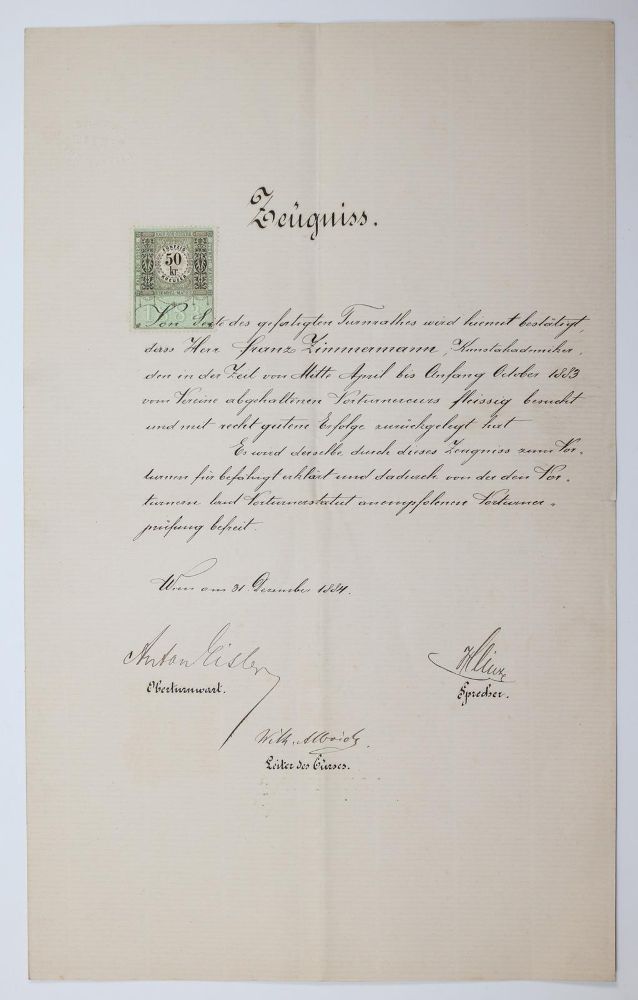 Zeugniss.
50
kr
Von Seite des gefertigten Turnrathes wird hiemit bestätigt,
dass Herr Franz Zimmermann, Kunstakademiker,
den in der Zeit von Mitte April bis Anfang October 1883
vom Vereine abgehaltenen Vorturnercurs fleissig besucht
und mit recht gutem Erfolge zurückgelegt hat
Es wird derselbe durch dieses Zeugniss zum Vor-
turnen für befähigt erklärt und dadurch von der den Vor-
turnern laut Vorturnerstatut anempfolenen Vorturner-
prüfung befreit.
Wien am 31. Dezember 1884.
Anton Eisler
Oberturnwart.
Sprecher.
Wilh.
Leiter des Curses.